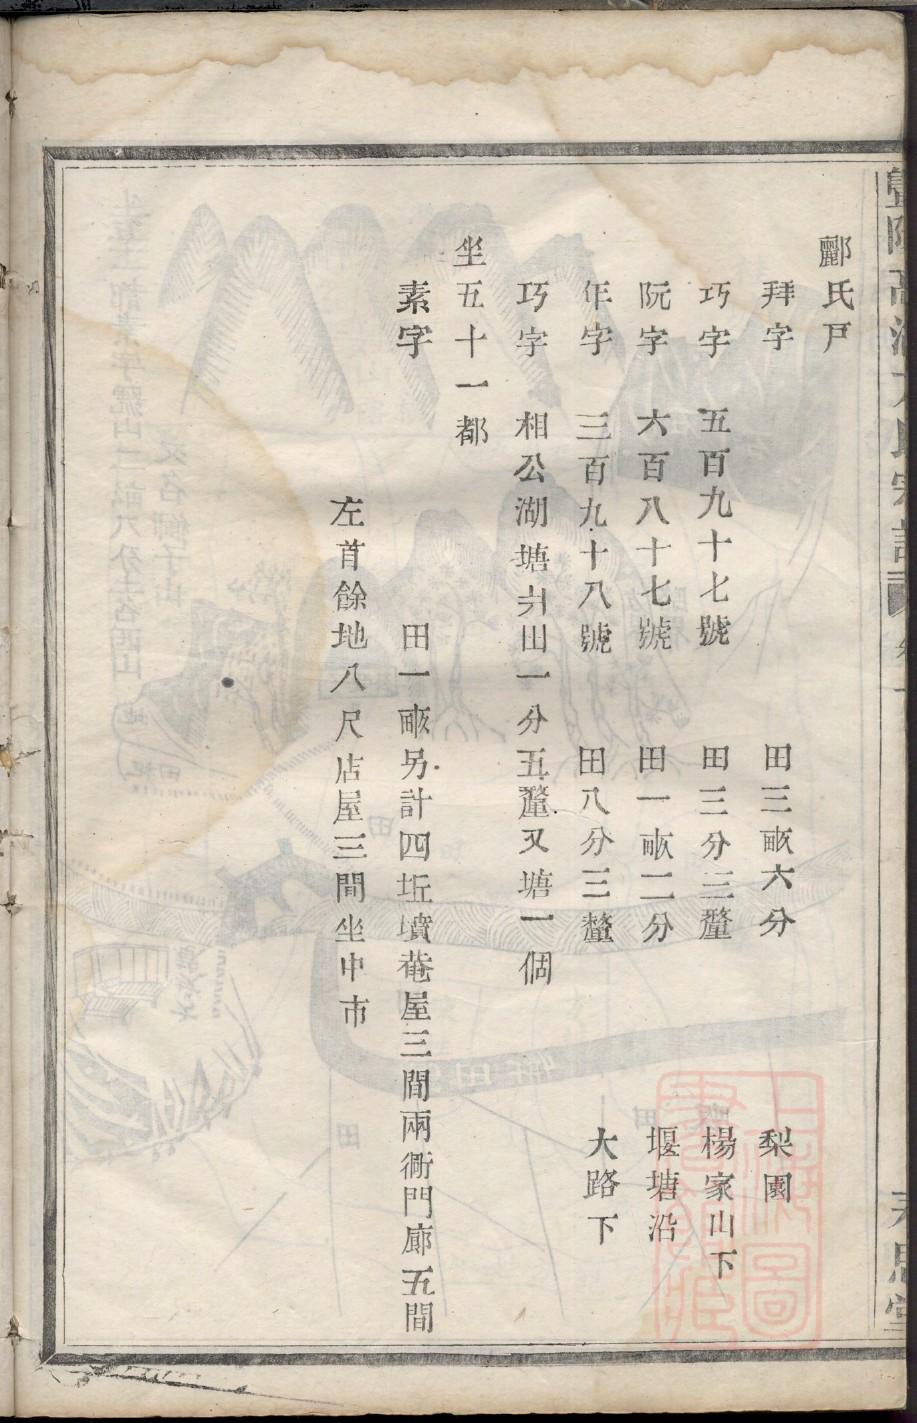 酈氏戸
拜字 田三畝六分 梨園
巧字 五百九十七號 田三分三釐 楊家山下
阮字 六百八十七號 田一畝二分 堰塘沿
年字 三百九十八號 田八分三釐 大路下
巧字 相公湖塘爿山一分五釐又塘一個
坐五十一都
素字 田一畝另計四坵墳菴屋三間兩衖門廊五間
左首餘地八尺店屋三間坐中市